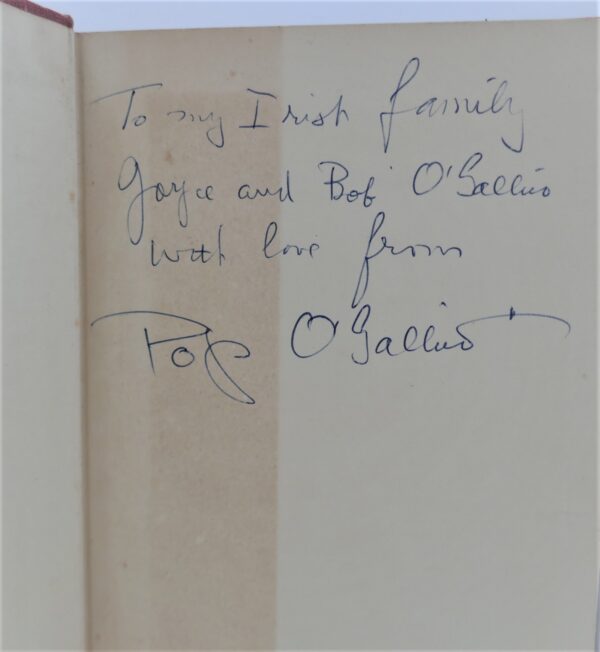 To my Irish family
Joyce and Bob O'Gallico
with love from
Pop O'Gallico